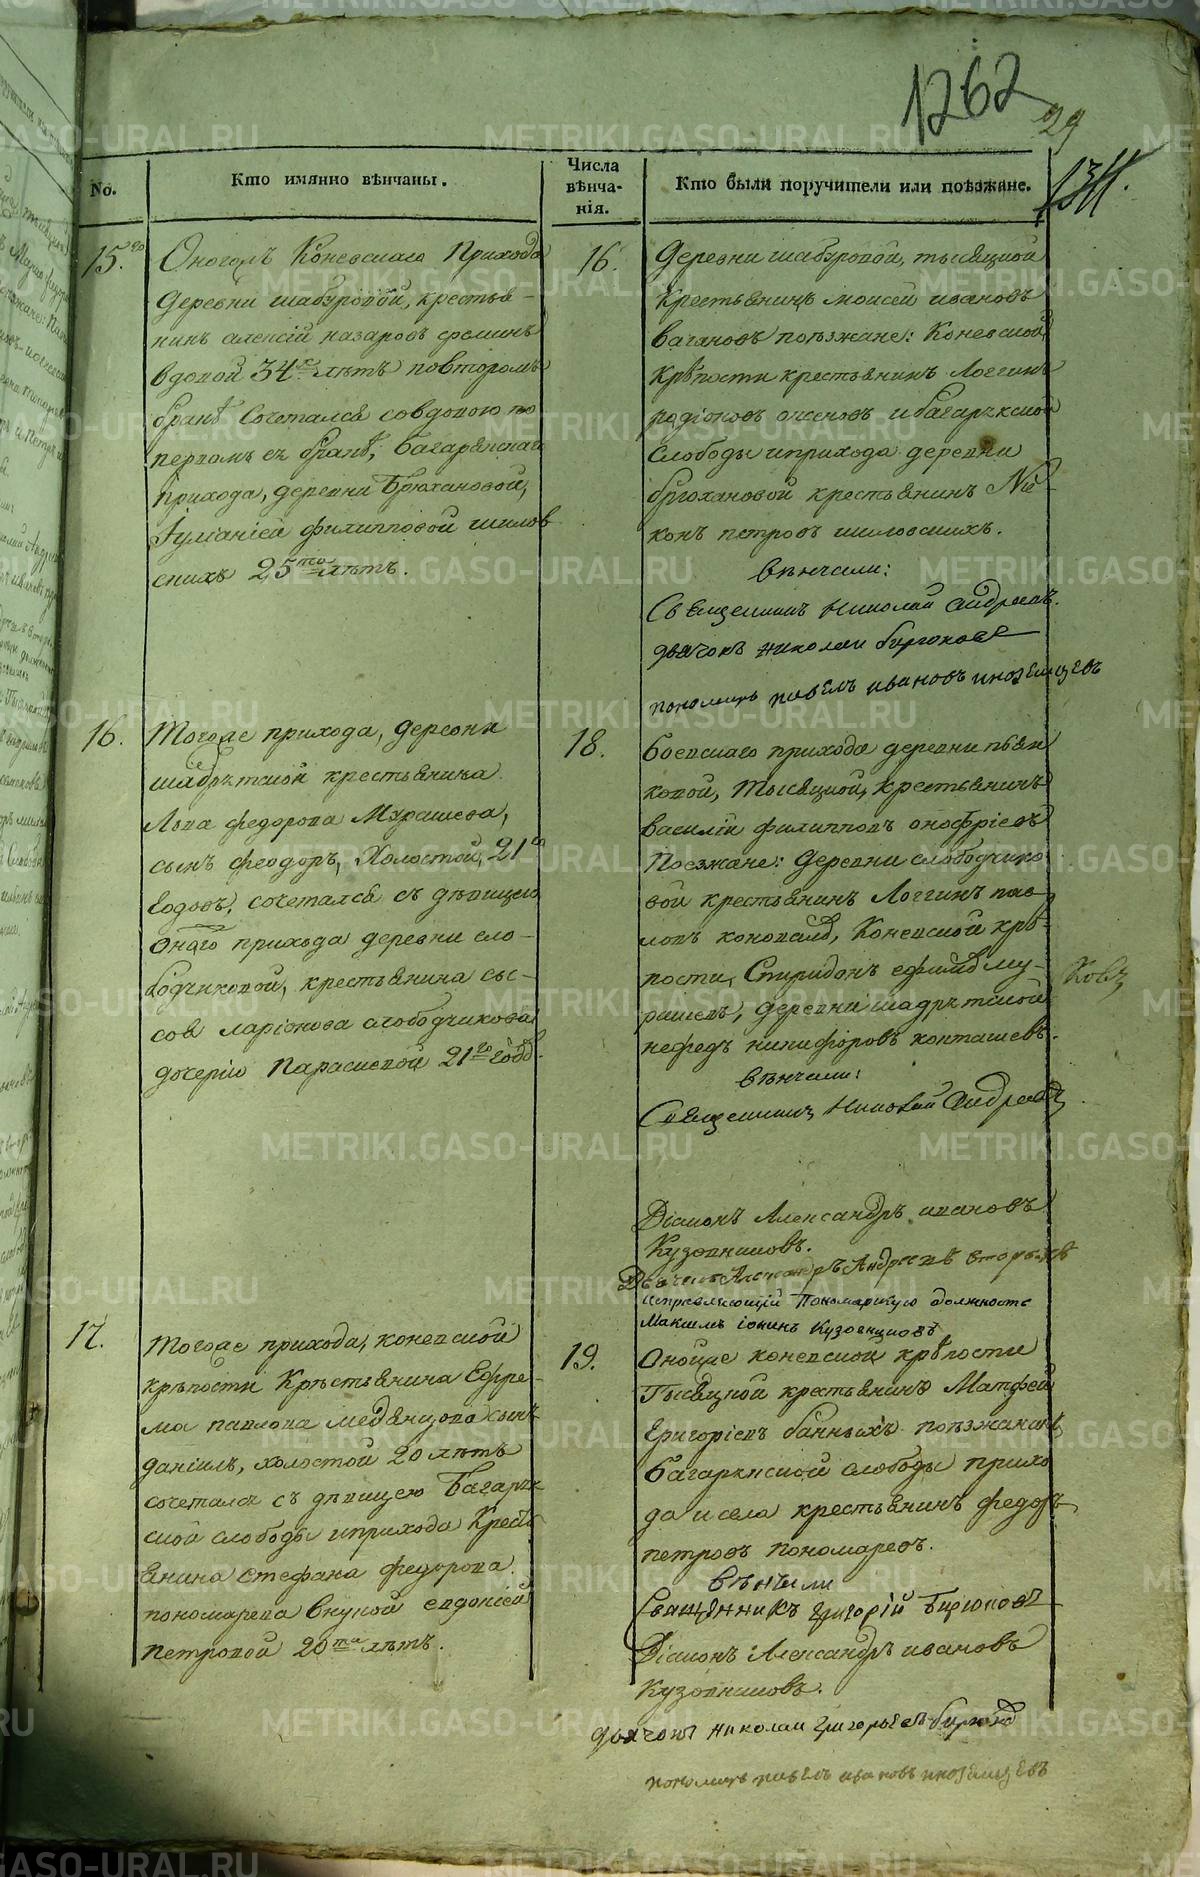 1262
29
131.
No.
Кто имянно вѣнчаны.
Числа
вѣнча-
нія.
Кто были поручители или поѣзжане.
15.
Оногожъ Коневскаго Прихода
деревни шабуровой, крестья-
нинъ алексій назаровъ
вдовой 34 лѣтъ повторомъ
бракѣ сочетался совдовою по
первомъ ея бракѣ, багарякскаго
прихода, деревни Брюхановой,
Іуліаніеа филипповой шилов
скихъ 25 лѣтъ.
16.
деревни шабуровой, тысяцкой
крестьянинъ моисей ивановъ
вагановъ поѣзжане: Коневской
крѣпости крестьянинъ Логгинъ
родіоновъ и багарякской
слободы иприхода деревни
брюхановой крестьянинъ Ни-
конъ петровъ шиловскихъ.
вѣнчали:
Священникъ Николай андреевъ.
дьячокъ николаи бирюковъ
пономарь павелъ ивановъ иноземцевъ
16.
Тогоже прихода, деревни
крестьянина
Льва федорова Мурашева,
сынъ феодоръ, Холостой, 21
годовъ, сочетался съ дѣвицею
Онаго прихода деревни сло-
бодчиковой, крестьянина сы-
соя ларіонова слободчикова
дочерію Парасковой 21 годъ.
18.
Боевскаго прихода деревни пьян
ковой, тысяцкой, крестьянинъ
василій филипповъ онофріевъ
Поезжане: деревни слободчико
вой крестьянинъ Логгинъ пав
ловъ коноваловъ, Коневской крѣ-
пости, Спиридонъ ефимовъ му-
рашевъ, деревни
нефедъ никифоровъ
вѣнчали:
Священникъ Николай Андреевъ
Діаконъ Александръ ивановъ
Кузовниковъ.
Дьячекъ Александръ Андреевъ
исправляющій пономарскую должность
Максимъ іонинъ Кузовниковъ
17.
Тогоже прихода, коневской
крѣпости Крестьянина Ефре-
ма павлова медвенцова сынъ
даніилъ, холостой 20 лѣтъ
сочетался съ дѣвицею Багаряк
ской слободы иприхода Кресть
янина стефана федорова
пономарева внукой евдокіей
петровой 20 лѣтъ.
19.
Оноцже коневской крѣпости
Тысяцкой крестьянинъ Матфей
григоріевъ банныхъ поѣзжанинъ
Багарякской слободы прихо
да и села крестьянинъ федоръ
петровъ пономаревъ.
вѣнчали
Священникъ григорій Бирюковъ
Діаконъ Александръ ивановъ
Кузовниковъ.
дьячокъ николаи григорьевъ бирюковъ
пономарь павелъ ивановъ иноземцевъ